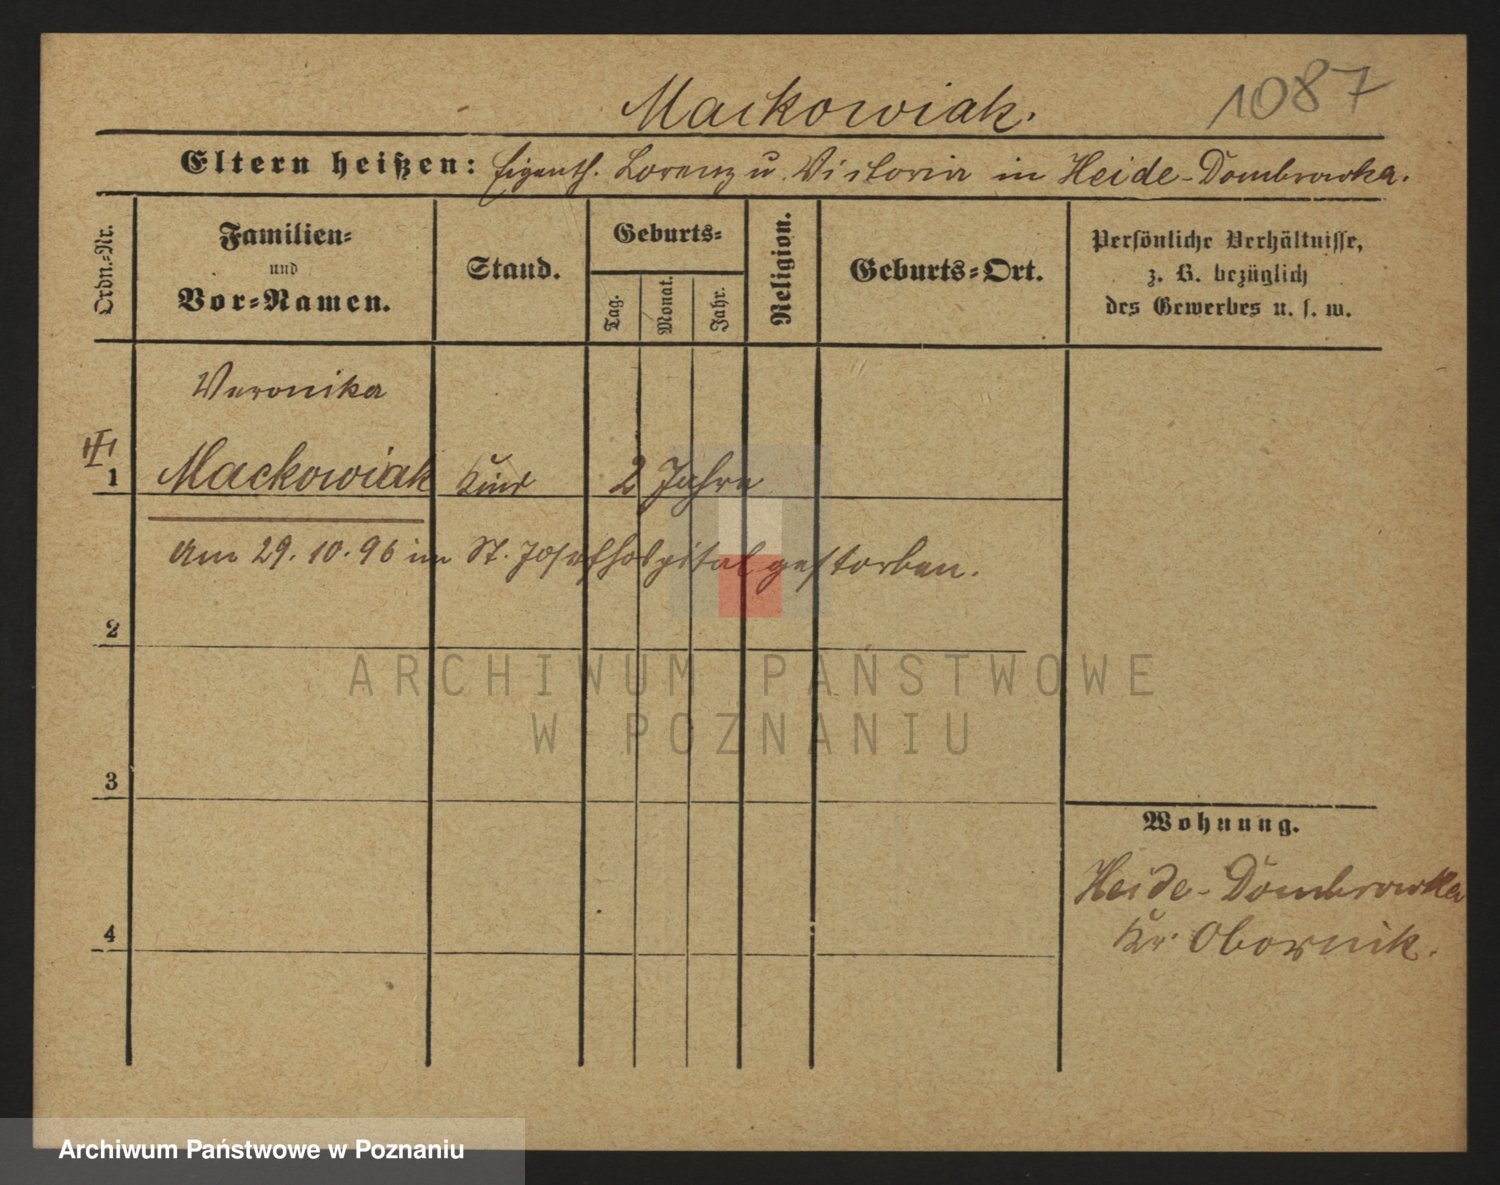 Mackowiak. 1087
Eltern heißen: Eigenth. Lorenz u. Victoria in Heide-Dombrowka.
Ordn.-Nr.
Familien-
und
Vor-Namen.
Stand.
Geburts-
Tag.
Monat.
Jahr.
Religion.
Geburts-Ort.
Persönliche Verhältnisse,
z. B. bezüglich
des Gewerbes u. s. w.
Veronika
1 Mackowiak Kind 2 Jahre
Am 29.10.96 im St. Josefhospital gestorben.
2
ARCHIWUM PAŃSTWOWE
W POZNANIU
3
Wohnung.
Heide-Dombrowka
Kr. Obornik.
4
Archiwum Państwowe w Poznaniu